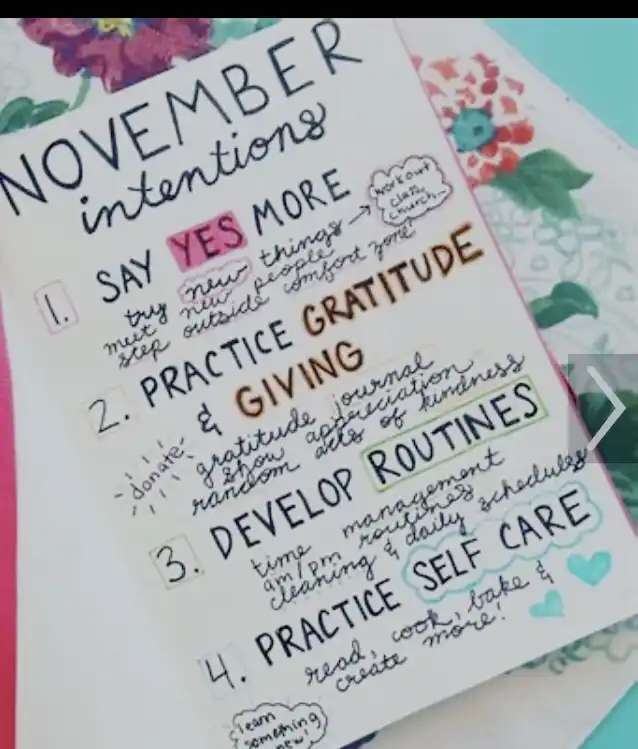 NOVEMBER
intentions
1. SAY YES MORE
try new things →
workout
class
church...
meet new people
step outside comfort zone!
2. PRACTICE GRATITUDE
& GIVING
donate
gratitude journal
show appreciation
random acts of kindness
3. DEVELOP ROUTINES
time management
am/pm routines
cleaning & daily schedules
4. PRACTICE SELF CARE
read, cook, bake &
create more!
learn
something
new!